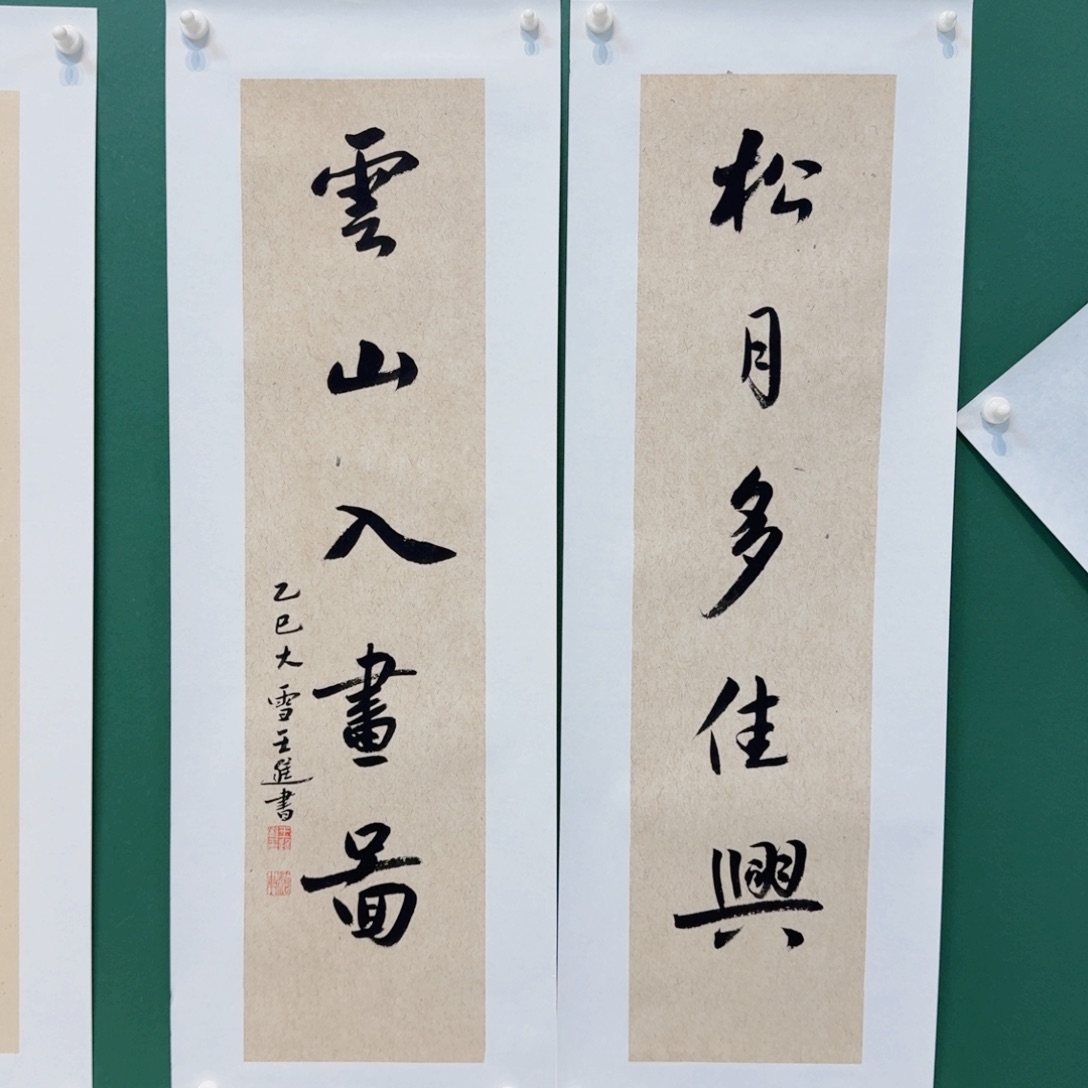 松月多佳興
雲山入畫啚
乙巳大雪王進書